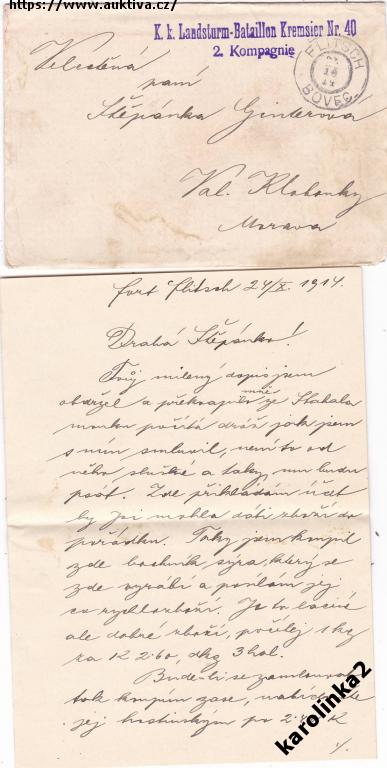 https://www.auktiva.cz/
K. k. Landsturm-Bataillon Kremsier Nr. 40
2. Kompagnie
FLITSCH
BOVEC
Velectěná
paní
Štěpánka Ginterová
Val. Klobouky
Morava
fort Flitsch 24/X. 1914.
Drahá Štěpánko!
Tvůj milený dopis jsem
obdržel a překvapilo mně že
počítá dráž jak jsem
s ním smluvil, není to od
něho slušné a taky mu budu
psát. Zde přikládám účet
by jsi mohla dáti zboží do
pořádku. Taky jsem koupil
zde bochník sýra, který se
zde vyrábí a posílám jej
co rychlozboží. Je to laciné
ale dobré zboží, počítej 1 kg
za K 2·60, dkg 3 hal.
Bude-li se zamlouvat
tak koupím zase,
jej hostinským po K
1/.
karolinka2